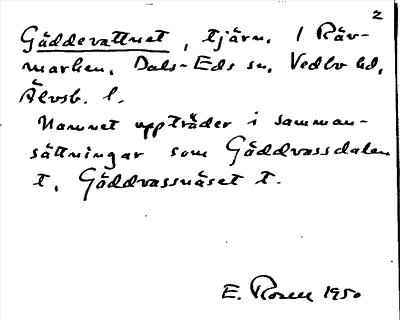 2
Gäddevattnet, tjärn. / Räv-
marken, Dals-Eds sn, Vedbo hd,
Älvsb. l.
Namnet uppträder i samman-
sättningar som Gäddvassdalen
t, Gäddvassnäset t.
E. Rosell 1950